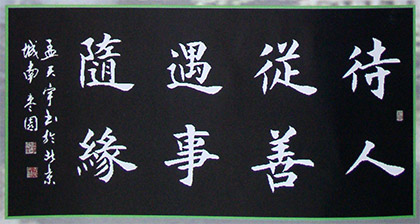 待人
從善
遇事
隨緣
孟天宇书於北京
城南枣园